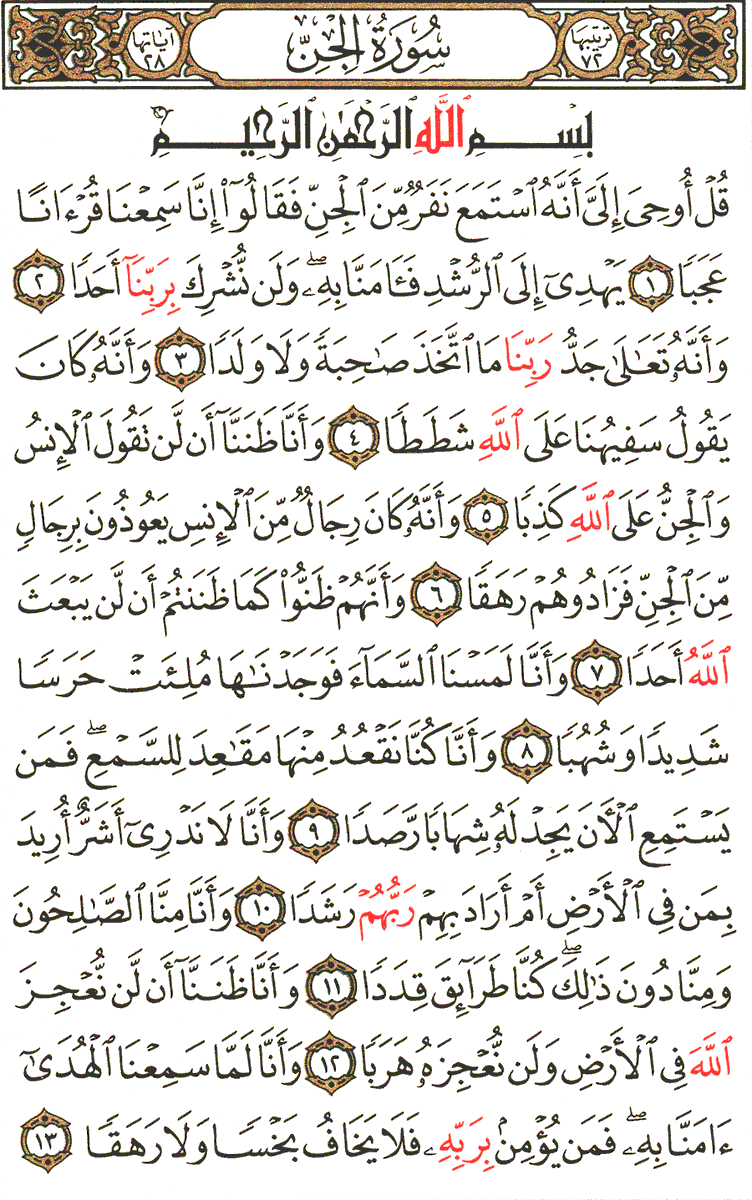 ترتيبها ٧٢ سُورَةُ الجِنِّ آياتها ٢٨
بِسْمِ ٱللَّهِ ٱلرَّحْمَٰنِ ٱلرَّحِيمِ
قُلْ أُوحِىَ إِلَىَّ أَنَّهُ ٱسْتَمَعَ نَفَرٌ مِّنَ ٱلْجِنِّ فَقَالُوٓا۟ إِنَّا سَمِعْنَا قُرْءَانًا
عَجَبًا ١ يَهْدِىٓ إِلَى ٱلرُّشْدِ فَـَٔامَنَّا بِهِۦ ۖ وَلَن نُّشْرِكَ بِرَبِّنَآ أَحَدًا ٢
وَأَنَّهُۥ تَعَٰلَىٰ جَدُّ رَبِّنَا مَا ٱتَّخَذَ صَٰحِبَةً وَلَا وَلَدًا ٣ وَأَنَّهُۥ كَانَ
يَقُولُ سَفِيهُنَا عَلَى ٱللَّهِ شَطَطًا ٤ وَأَنَّا ظَنَنَّآ أَن لَّن تَقُولَ ٱلْإِنسُ
وَٱلْجِنُّ عَلَى ٱللَّهِ كَذِبًا ٥ وَأَنَّهُۥ كَانَ رِجَالٌ مِّنَ ٱلْإِنسِ يَعُوذُونَ بِرِجَالٍ
مِّنَ ٱلْجِنِّ فَزَادُوهُمْ رَهَقًا ٦ وَأَنَّهُمْ ظَنُّوا۟ كَمَا ظَنَنتُمْ أَن لَّن يَبْعَثَ
ٱللَّهُ أَحَدًا ٧ وَأَنَّا لَمَسْنَا ٱلسَّمَآءَ فَوَجَدْنَٰهَا مُلِئَتْ حَرَسًا
شَدِيدًا وَشُهُبًا ٨ وَأَنَّا كُنَّا نَقْعُدُ مِنْهَا مَقَٰعِدَ لِلسَّمْعِ ۖ فَمَن
يَسْتَمِعِ ٱلْءَانَ يَجِدْ لَهُۥ شِهَابًا رَّصَدًا ٩ وَأَنَّا لَا نَدْرِىٓ أَشَرٌّ أُرِيدَ
بِمَن فِى ٱلْأَرْضِ أَمْ أَرَادَ بِهِمْ رَبُّهُمْ رَشَدًا ١٠ وَأَنَّا مِنَّا ٱلصَّٰلِحُونَ
وَمِنَّا دُونَ ذَٰلِكَ ۖ كُنَّا طَرَآئِقَ قِدَدًا ١١ وَأَنَّا ظَنَنَّآ أَن لَّن نُّعْجِزَ
ٱللَّهَ فِى ٱلْأَرْضِ وَلَن نُّعْجِزَهُۥ هَرَبًا ١٢ وَأَنَّا لَمَّا سَمِعْنَا ٱلْهُدَىٰٓ
ءَامَنَّا بِهِۦ ۖ فَمَن يُؤْمِنۢ بِرَبِّهِۦ فَلَا يَخَافُ بَخْسًا وَلَا رَهَقًا ١٣